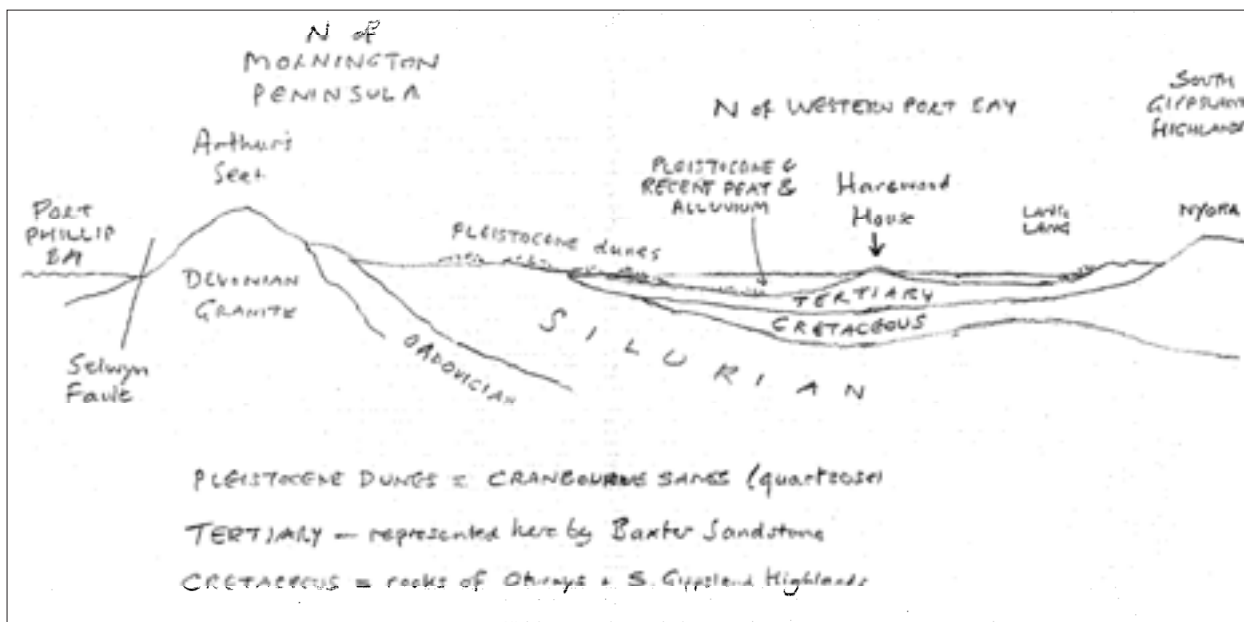 N of
MORNINGTON
PENINSULA
SOUTH
GIPPSLAND
HIGHLANDS
N of WESTERN PORT BAY
Arthur's
Seat
PLEISTOCENE &
RECENT PEAT &
ALLUVIUM
Harewood
House
LANG
LANG
NYORA
PORT
PHILLIP
BAY
PLEISTOCENE dunes
DEVONIAN
GRANITE
TERTIARY
CRETACEOUS
SILURIAN
ORDOVICIAN
Selwyn
Fault
PLEISTOCENE DUNES = CRANBOURNE SANDS (quartzose)
TERTIARY — represented here by Baxter Sandstone
CRETACEOUS = rocks of Otways + S. Gippsland Highlands